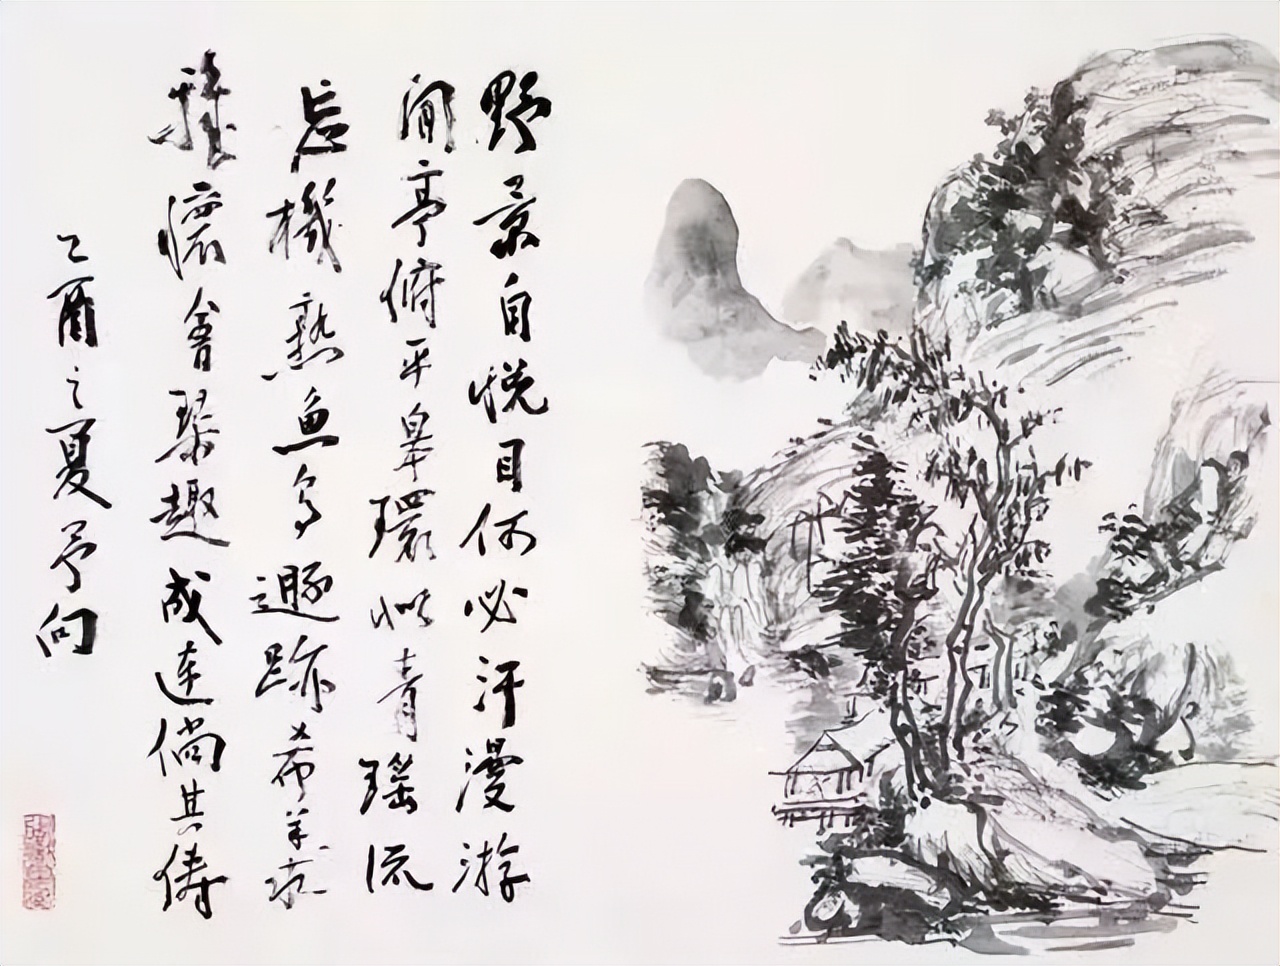 野景自悦目何必汗漫游
閒亭俯平皋環以青瑶流
忘機熟魚鳥遯跡希羊求
雅懷會琴趣成連倘其儔
乙酉之夏予向